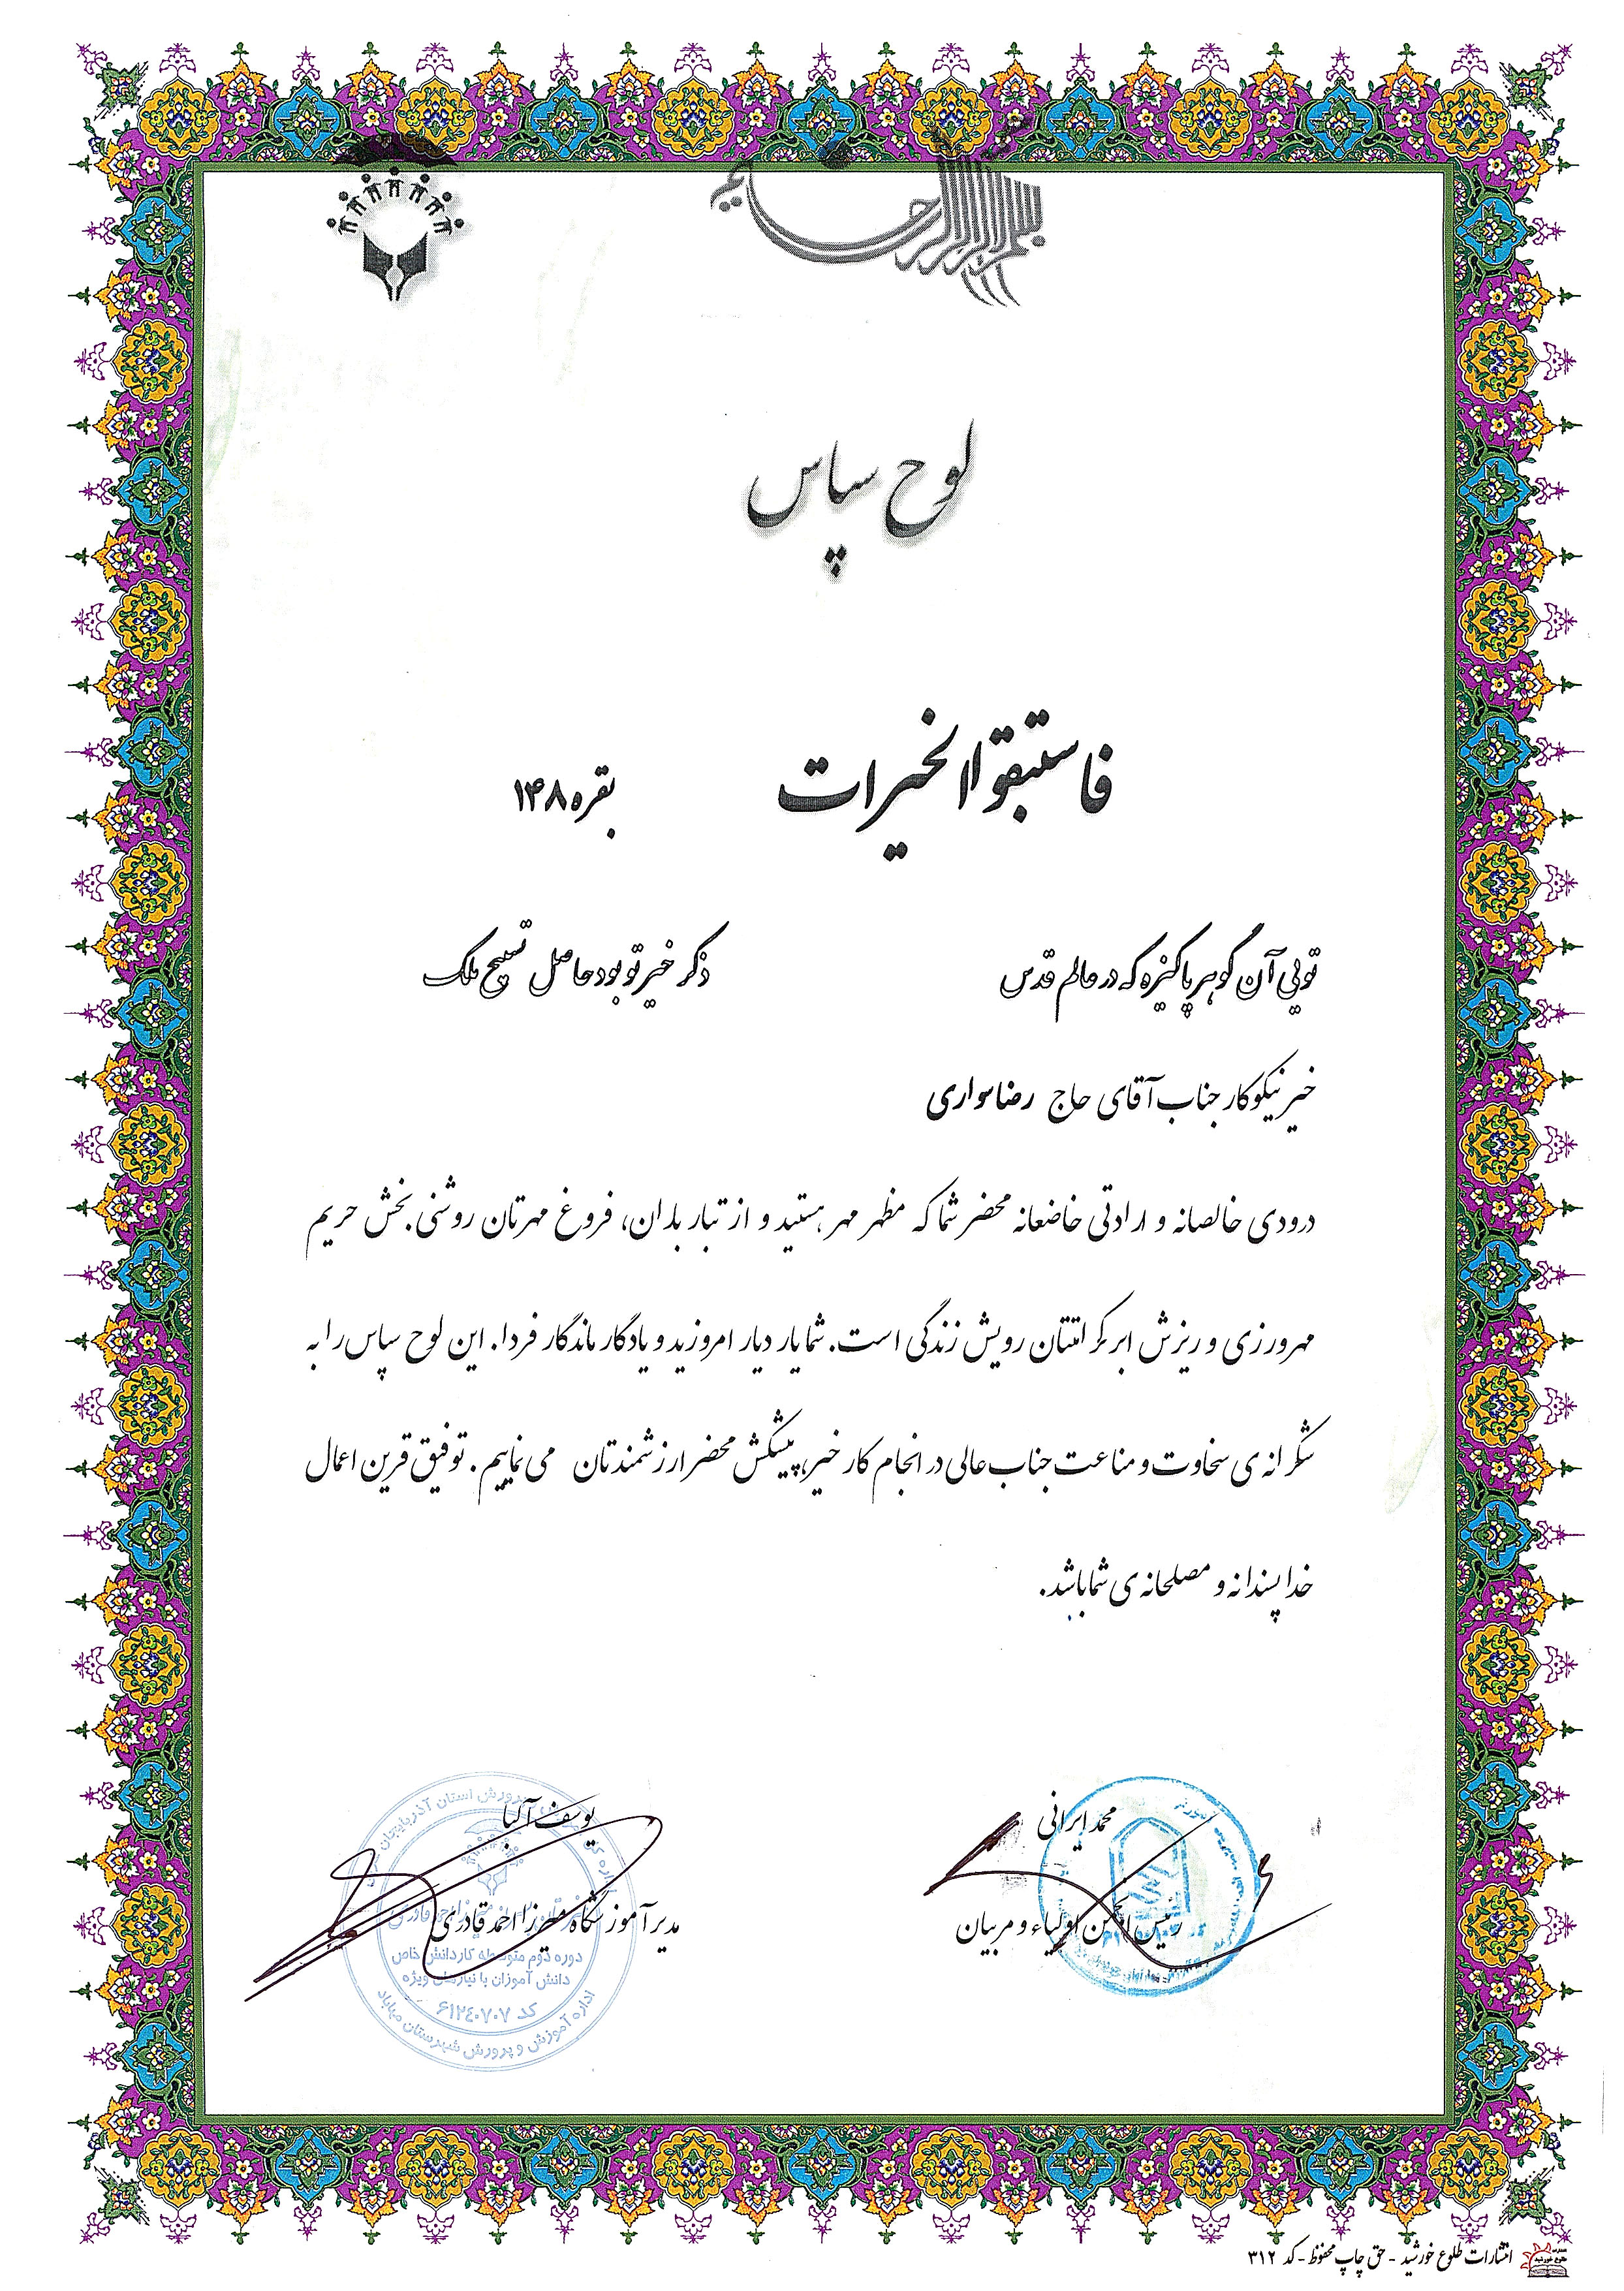 بسم الله الرحمن الرحیم
لوح سپاس
فاستبقوا الخیرات بقره ۱۴۸
تویی آن گوهر پاکیزه که در عالم قدس ذکر خیر تو بود حاصل تسبیح ملک
خیر نیکوکار جناب آقای حاج رضا سواری
درودی خالصانه و ارادتی خاضعانه محضر شما که مظهر مهر هستید و از تبار باران، فروغ مهرتان روشنی بخش حریم
مهرورزی و ریزش ابر کرامتتان رویش زندگی است. شما یار دیار امروزید و یادگار ماندگار فردا. این لوح سپاس را به
شکرانه ی سخاوت و مناعت جناب عالی در انجام کار خیر، پیشکش محضر ارزشمندتان می نماییم. توفیق قرین اعمال
خدا پسندانه و مصلحانه ی شما باشد.
محمد ایرانی
رئیس انجمن اولیاء و مربیان
یوسف
مدیر آموزشگاه میرزا احمد قادری
پرورش استان آذربایجان
دوره دوم متوسطه کاردانش خاص
دانش آموزان با نیازهای ویژه
کد ۶۱۲۴۰۷۰۷
اداره آموزش و پرورش شهرستان مهاباد
انتشارات طلوع خورشید - حق چاپ محفوظ - کد ۳۱۲